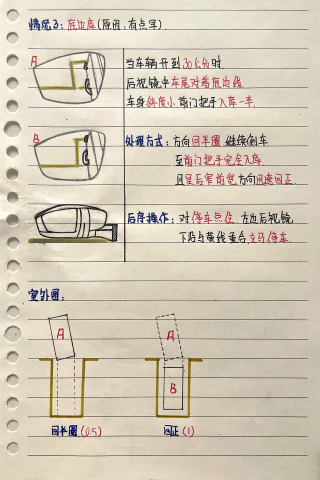 情况3：底边库(原因，有点早)
A
当车辆开到30公分时
后视镜中车尾对着底边线
车身斜度小 前门把手入库一半
B
处理方式：方向回半圈 继续倒车
至前门把手完全入库
且呈后窄前宽方向迅速回正.
后序操作：对停车点位 左边后视镜
下沿与黄线重合，立马停车.
室外图：
A
A
B
回半圈(0.5)
回正(1)